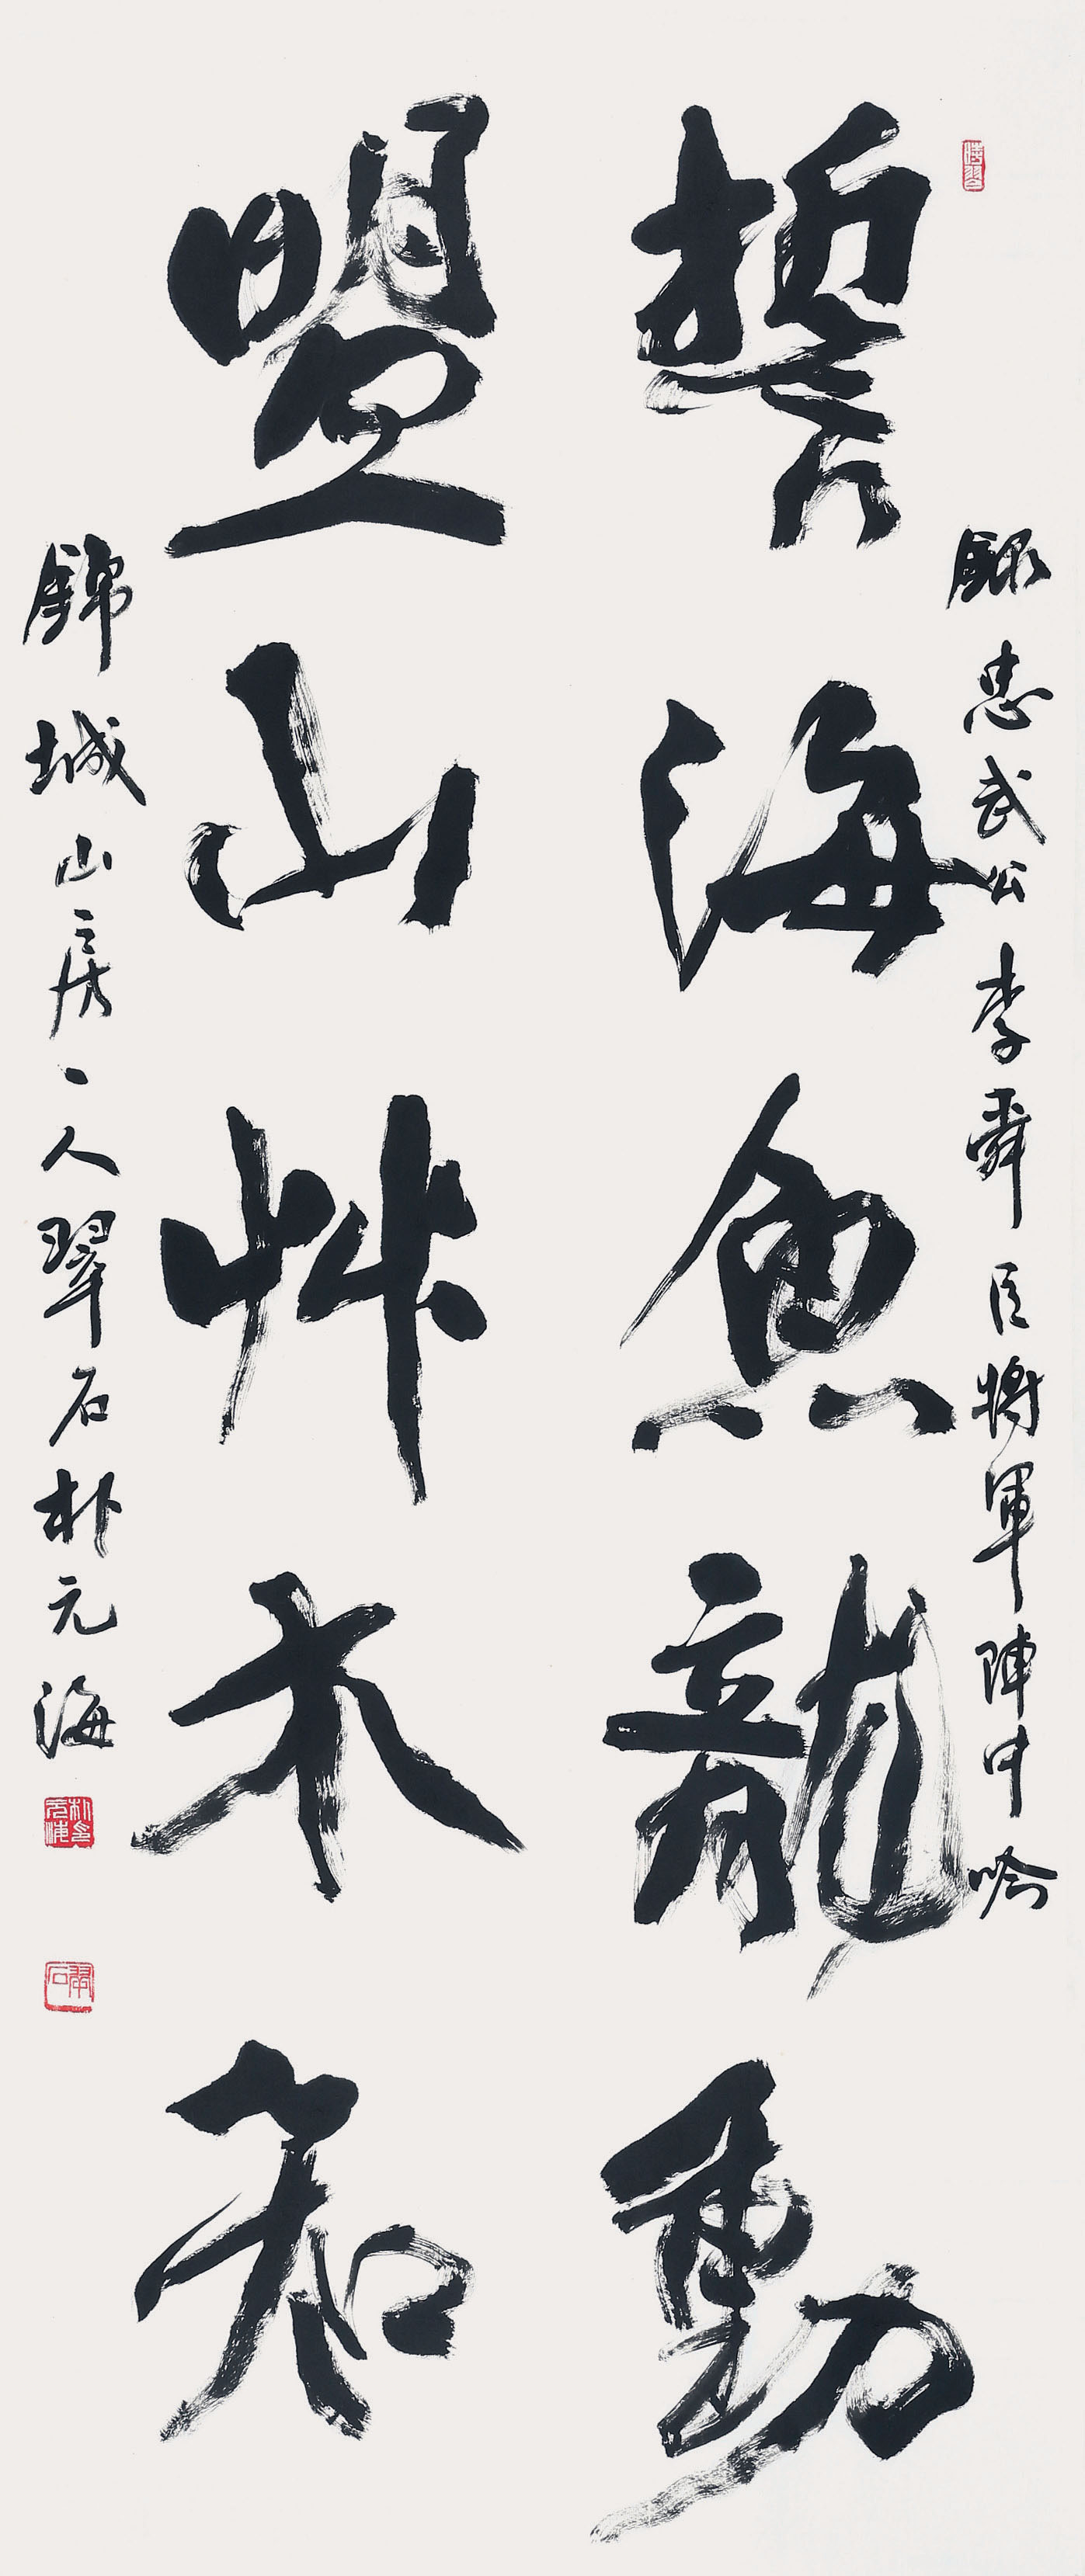 時習
錄忠武公李舜臣將軍陣中吟
誓海魚龍動
盟山艸木知
錦城山房丶人翠石朴元海
翠石